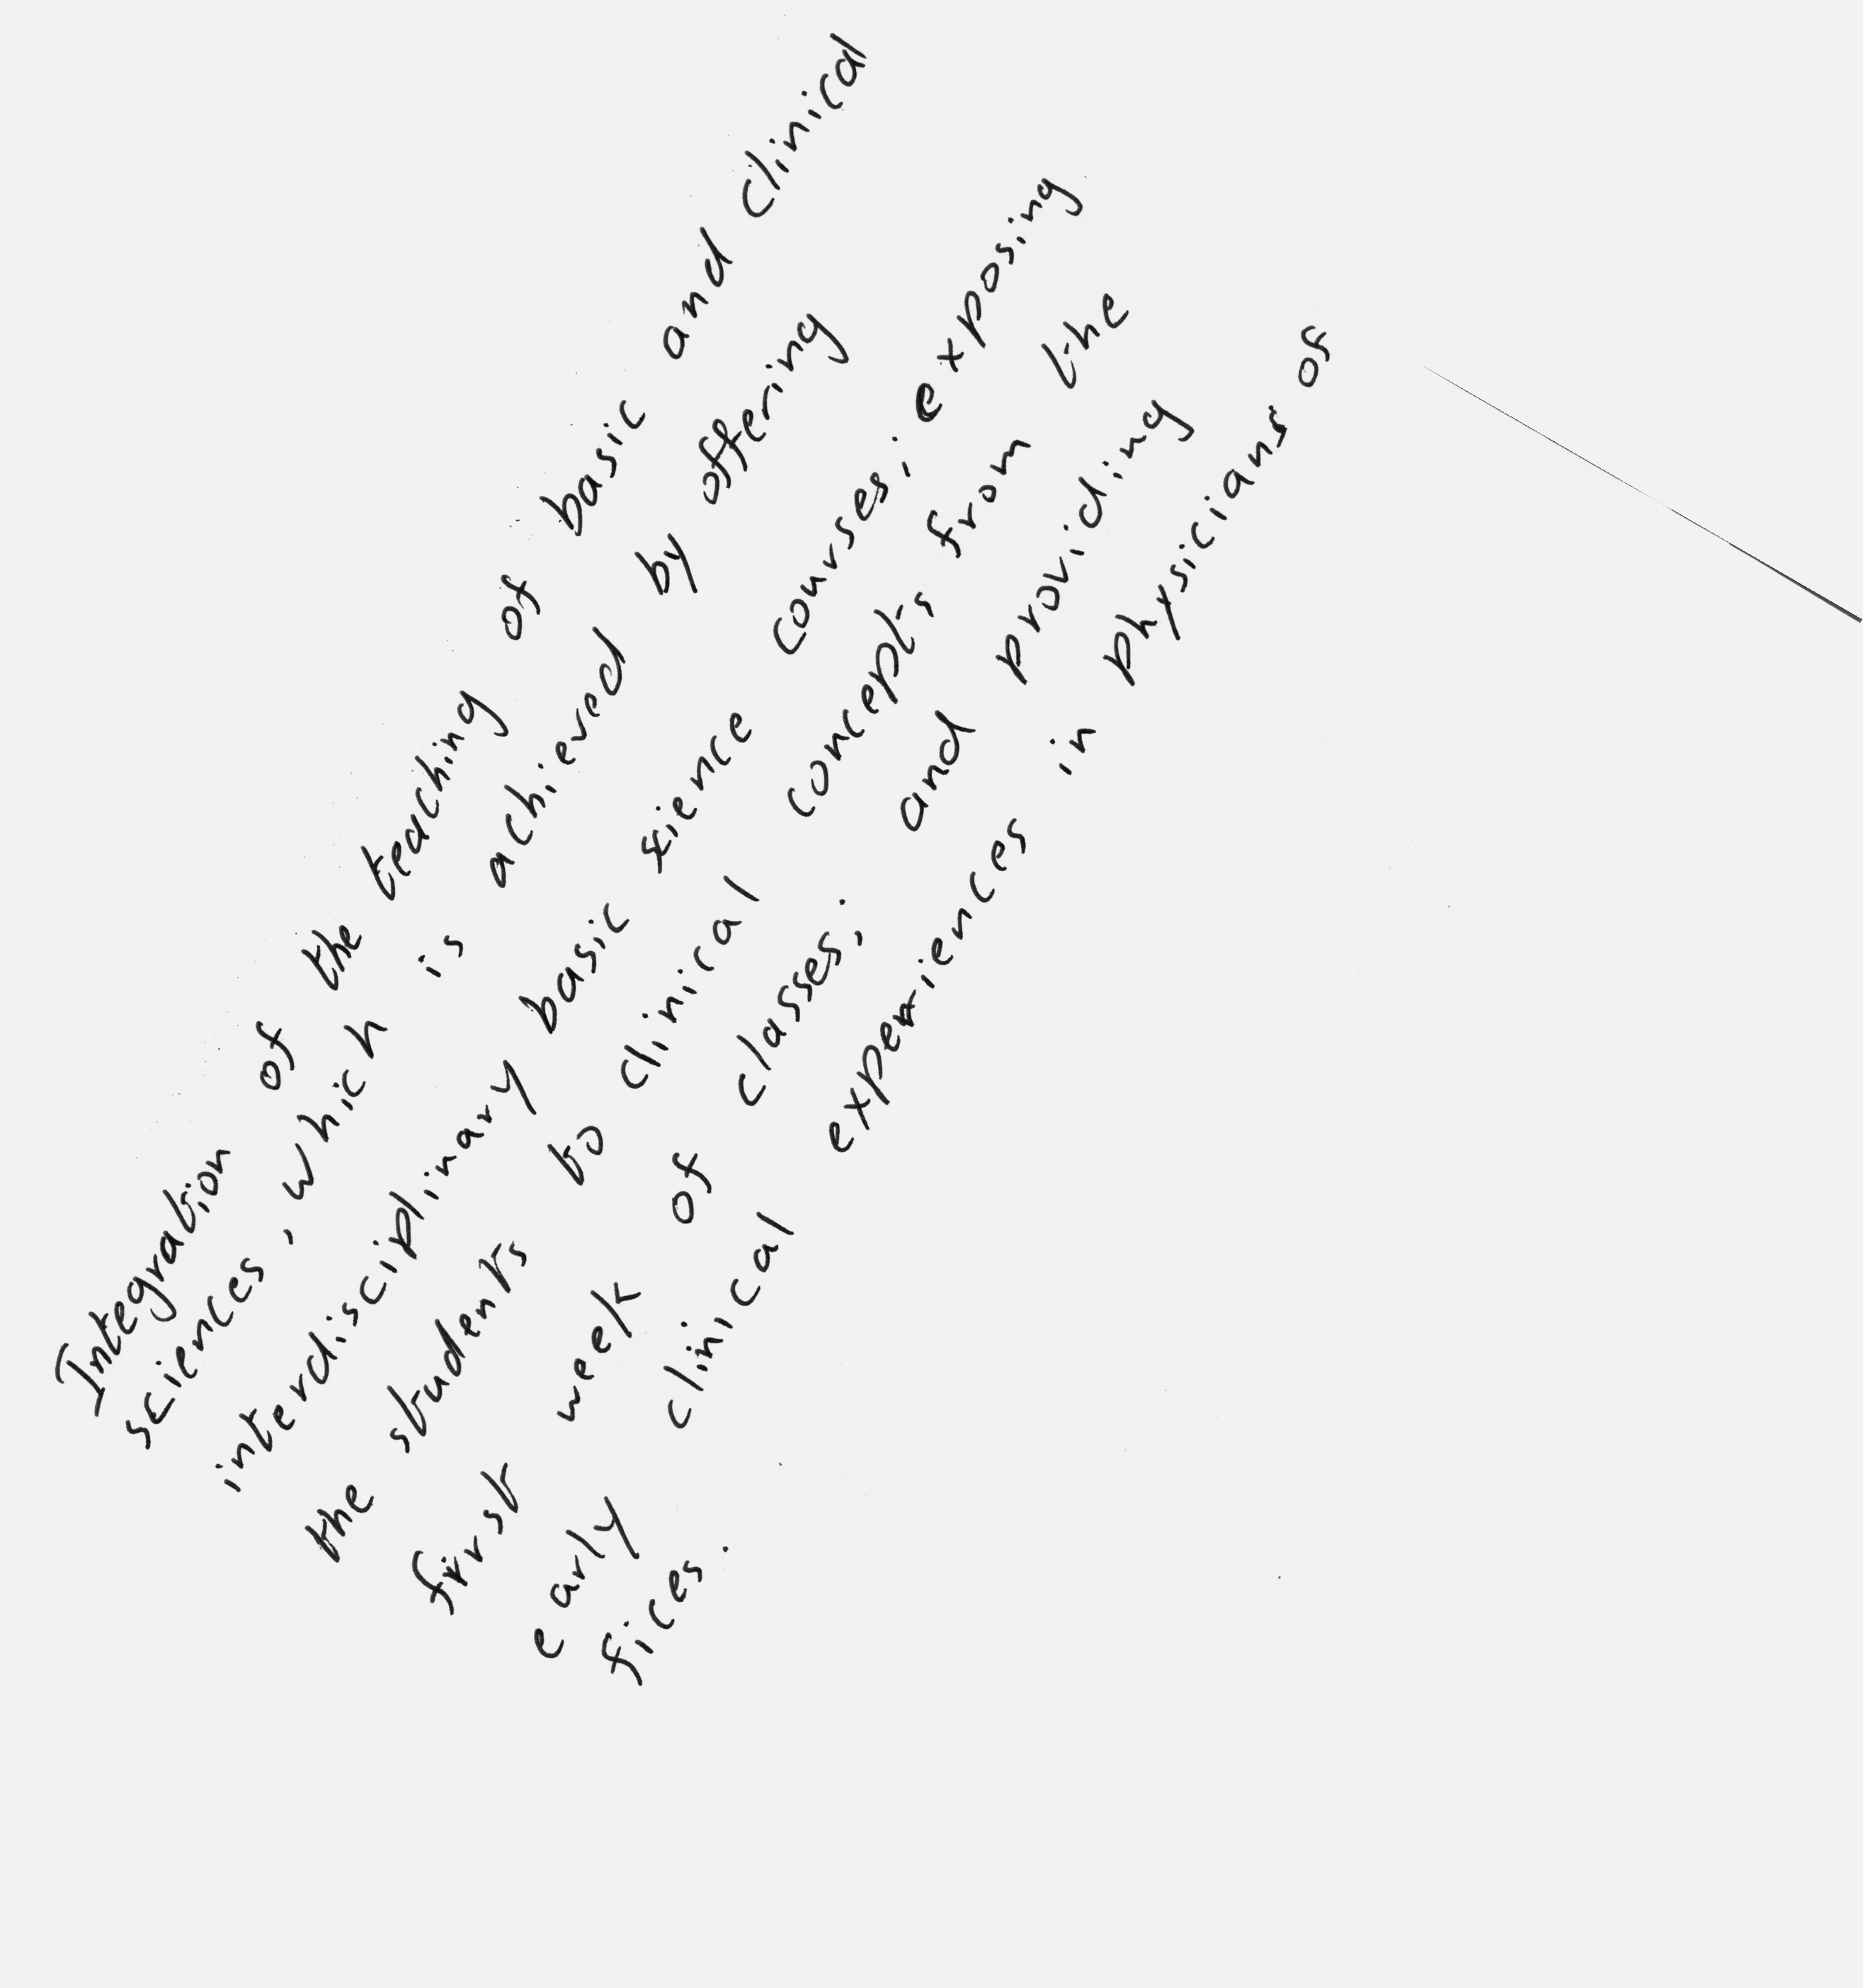 Integration of the teaching of basic and clinical
sciences, which is achieved by offering
interdisciplinary basic sience courses; exposing
the students to clinical concepts from the
first week of classes; and providing
early clinical experiences in physicians of
fices.